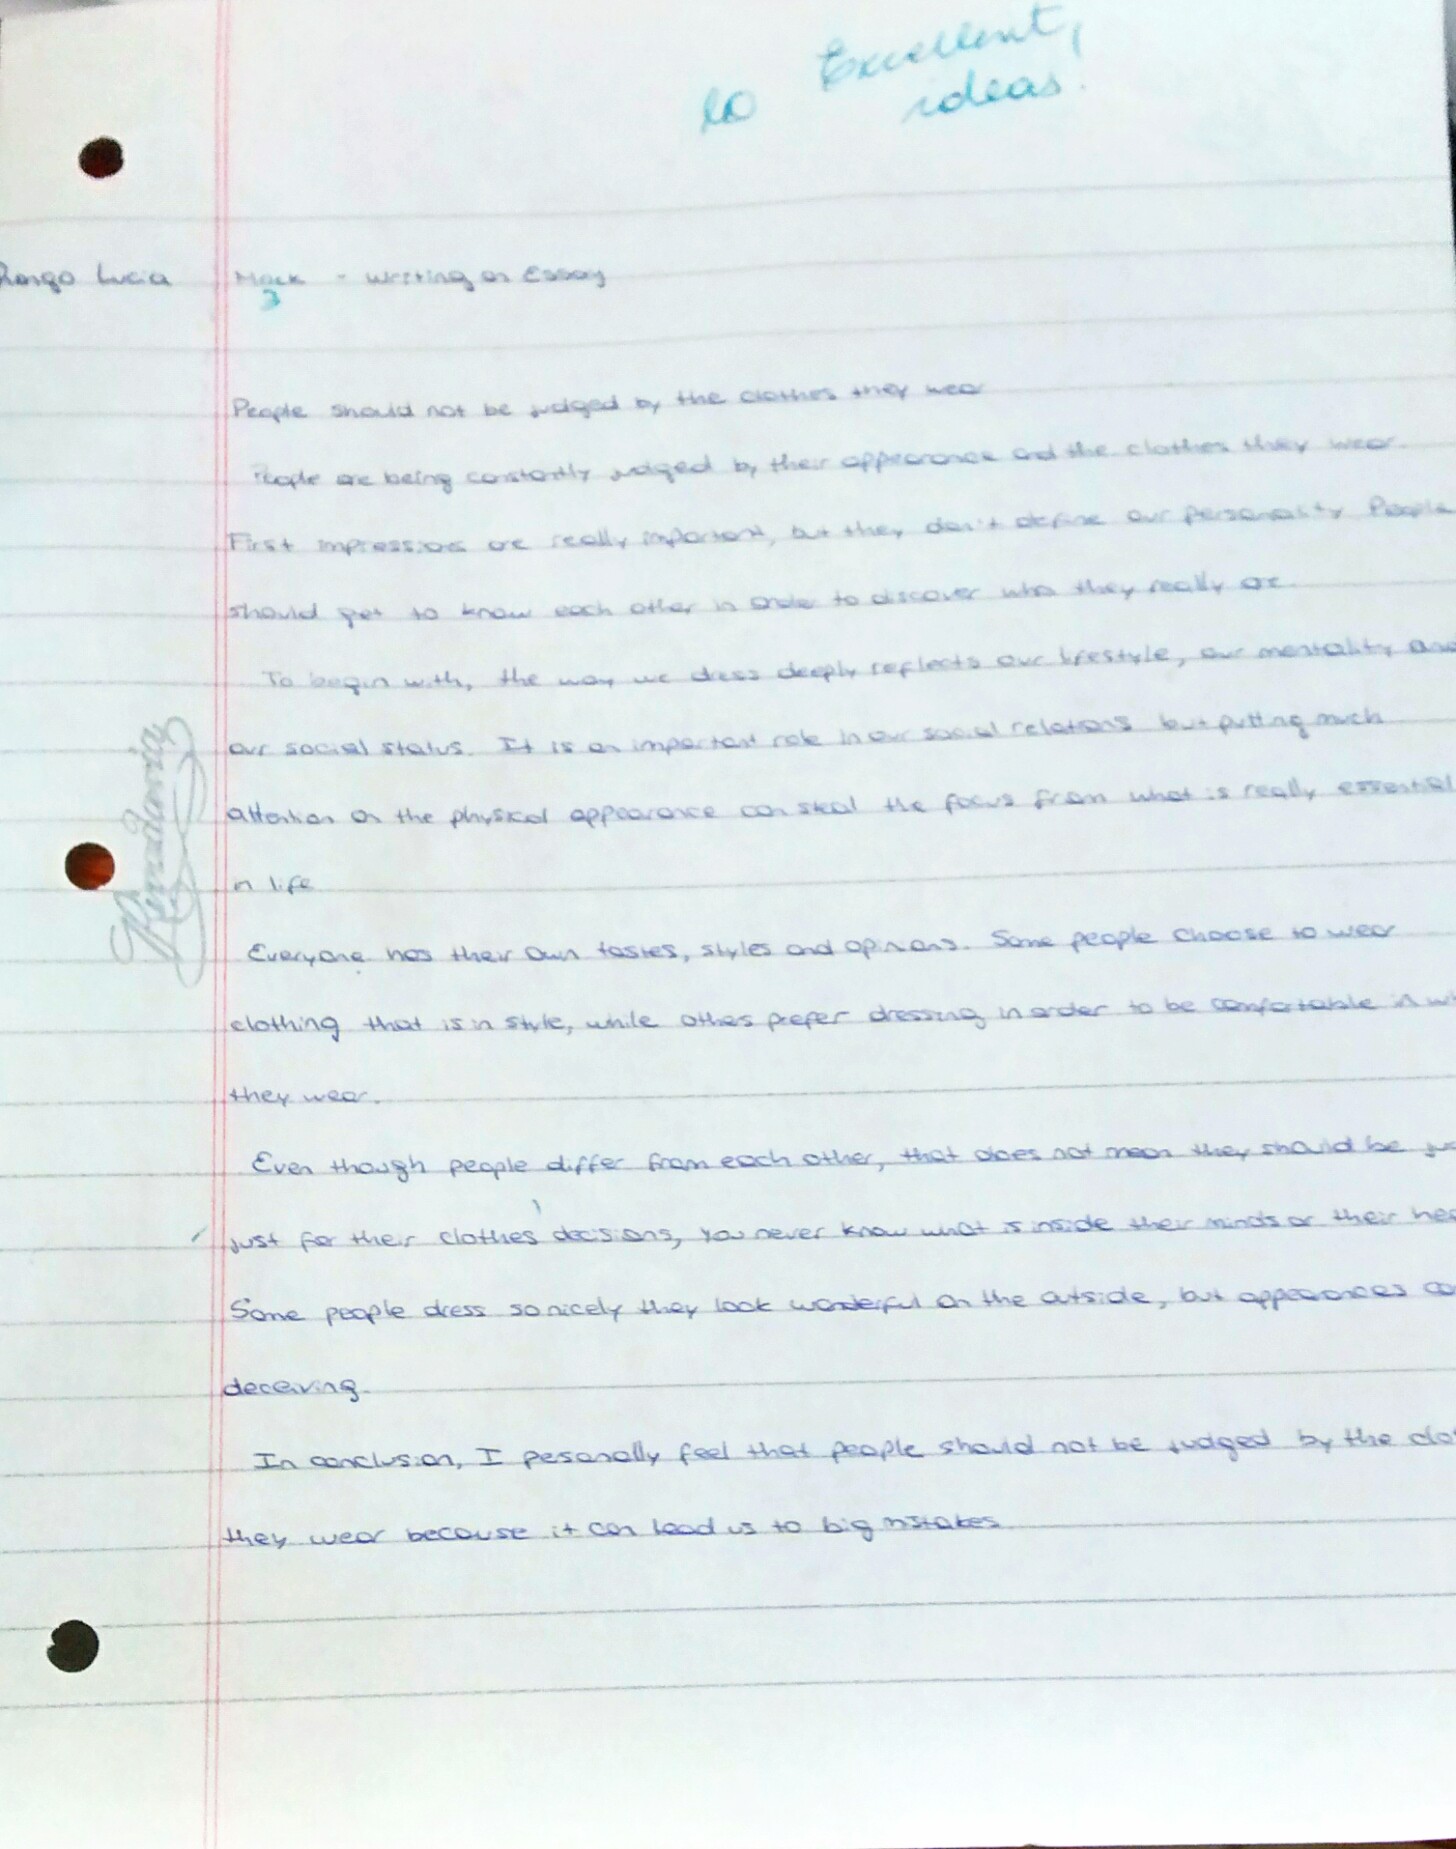 10 Excellent,
ideas!
Longo Lucia Mock - Writing an Essay
3
People should not be judged by the clothes they wear
People are being constantly judged by their appearance and the clothes they wear.
First impressions are really important, but they don't define our personality People
should get to know each other in order to discover who they really are.
To begin with, the way we dress deeply reflects our lifestyle, our mentality and
our social status. It is an important role in our social relations but putting much
attention on the physical appearance can steal the focus from what is really essential
in life
Everyone has their own tastes, styles and opinions. Some people choose to wear
clothing that is in style, while others prefer dressing in order to be comfortable in
they wear.
Even though people differ from each other, that does not mean they should be
just for their clothes' decisions, you never know what is inside their minds or their
Some people dress so nicely they look wonderful on the outside, but appearances
deceiving.
In conclusion, I pesonally feel that people should not be judged by the
they wear because it can lead us to big mistakes